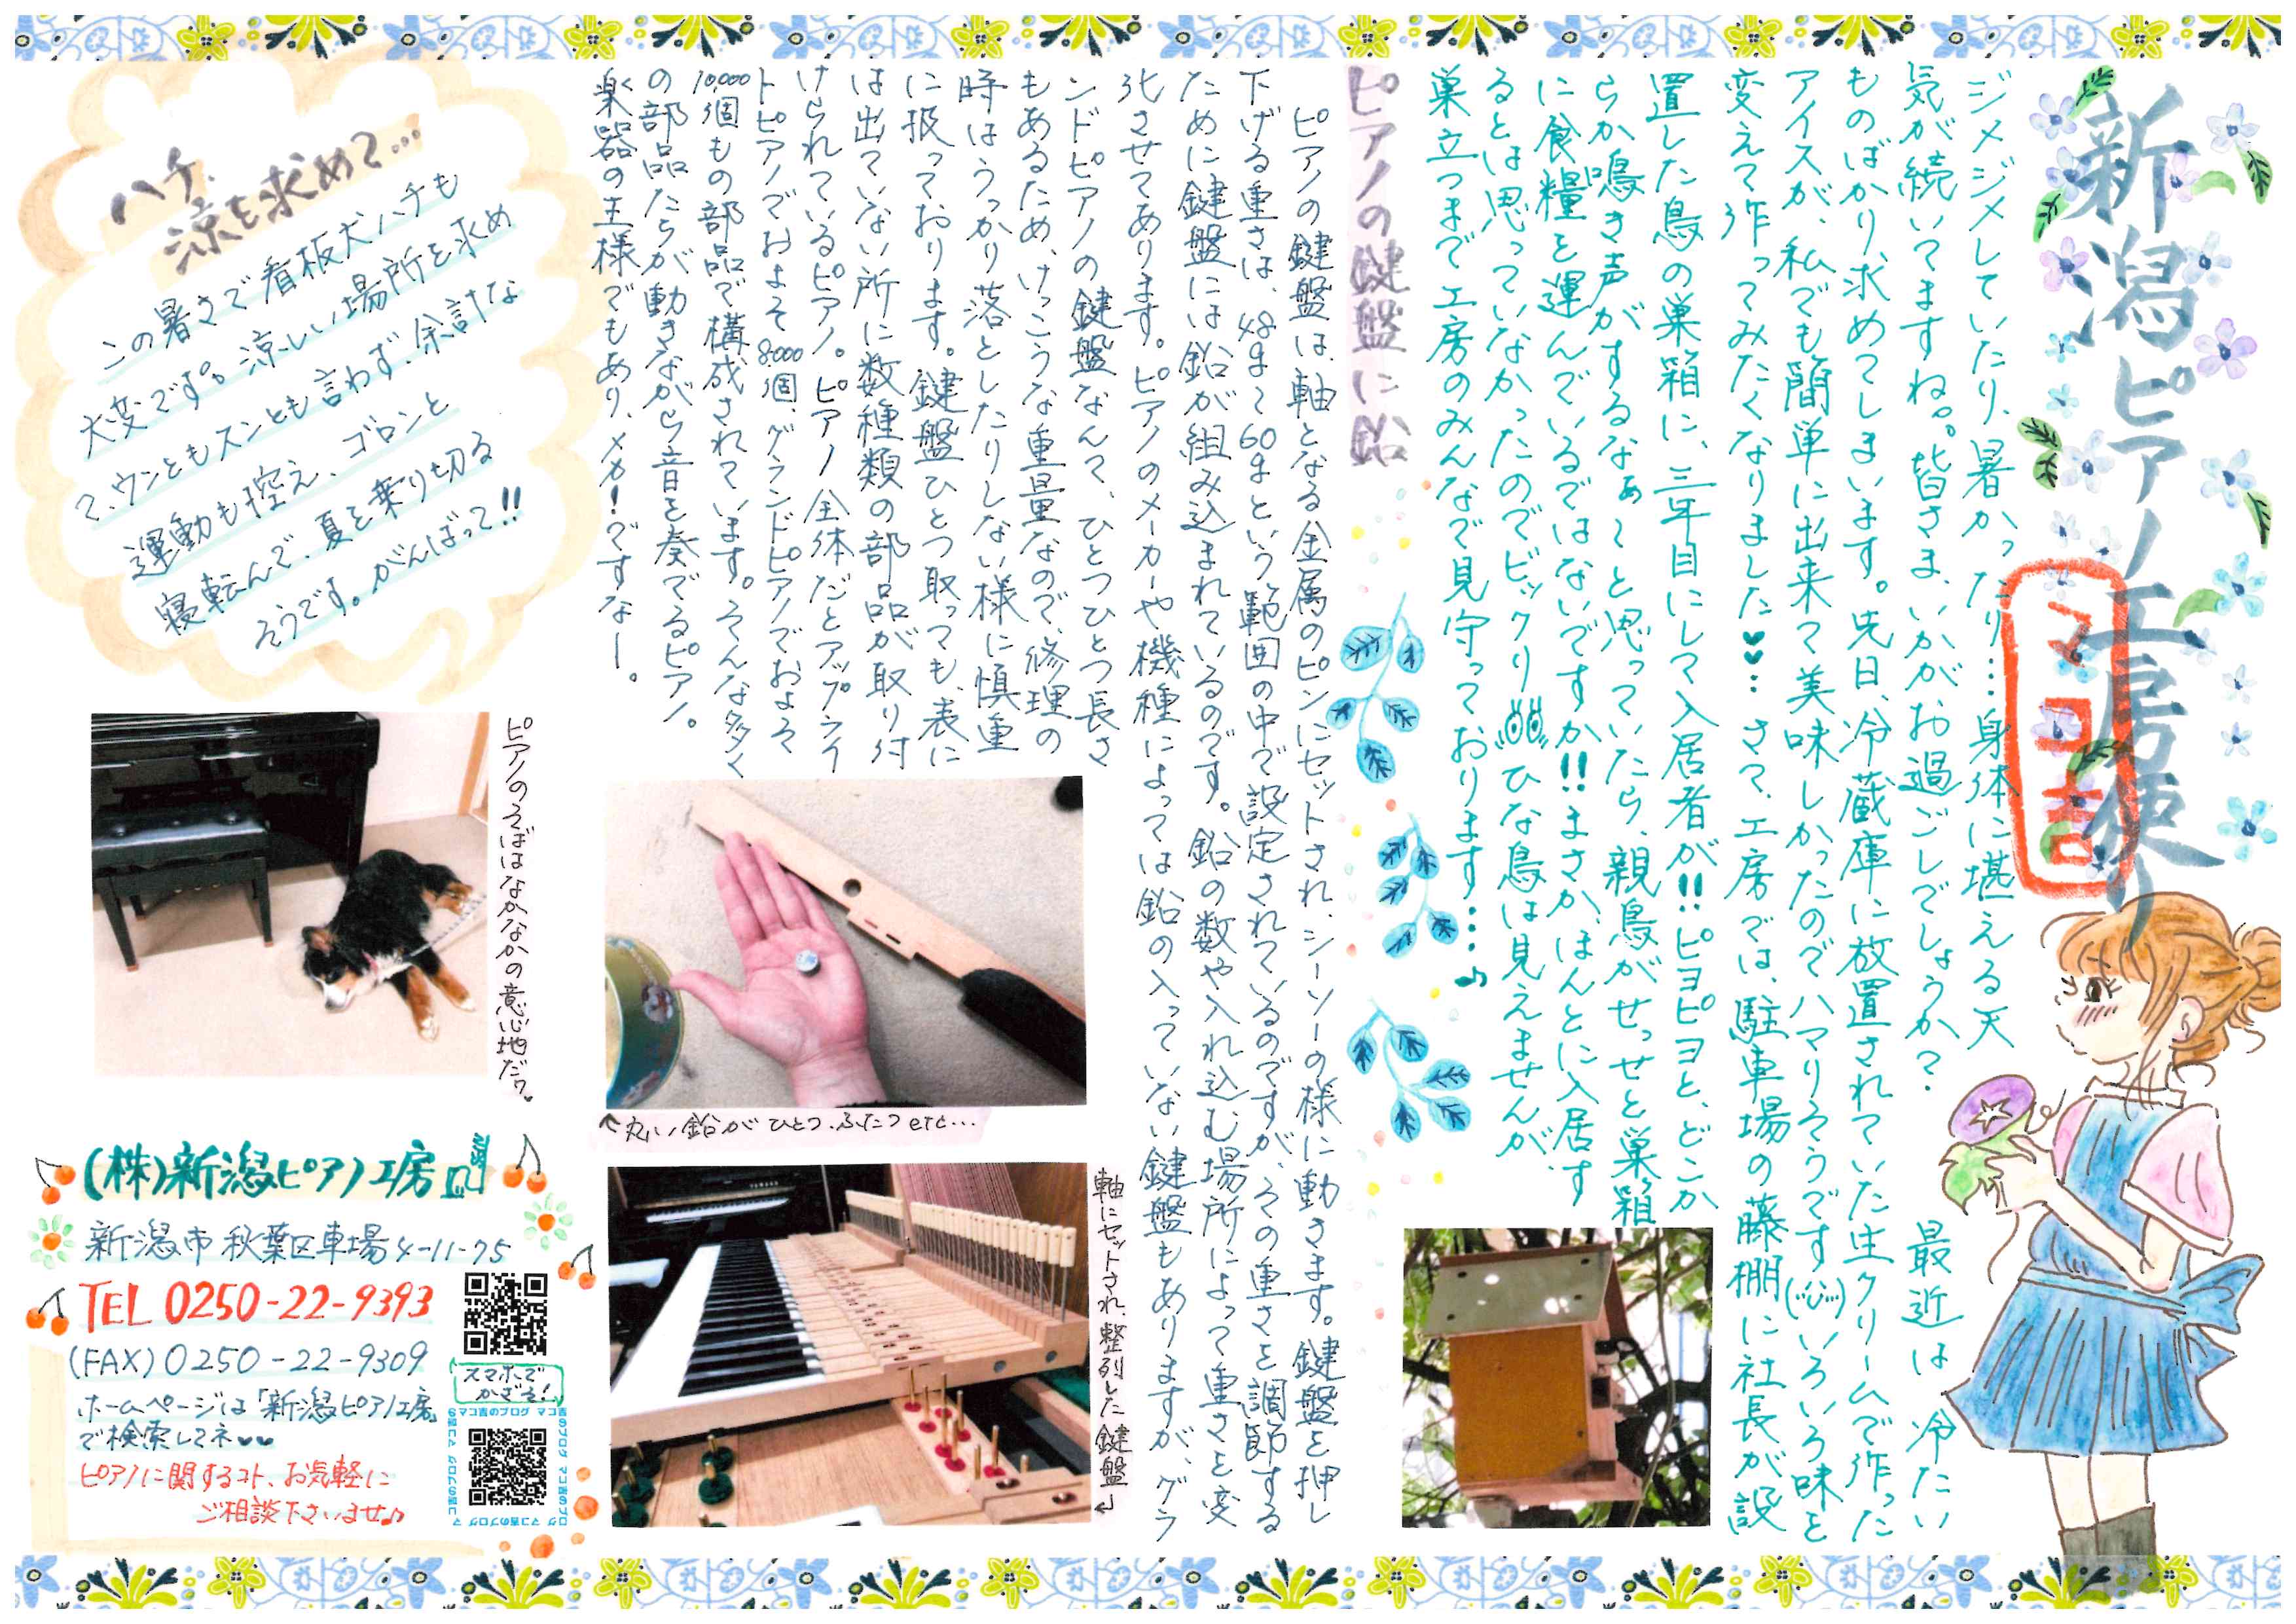 新潟ピアノ工房便り
マコ吉
ジメジメしていたり、暑かったり…身体に堪える天
気が続いてますね。。皆さま、いかがお過ごしでしょうか? 最近は冷たい
ものばかり求めてしまいます。先日、冷蔵庫に放置されていた生クリームで作った
アイスが、私でも簡単に出来て美味しかったのでハマりそうです(¨)いろいろ味を
変えて作ってみたくなりました♥♥… さて、工房では、駐車場の藤棚に社長が設
置した鳥の巣箱に、三年目にして入居者が!!ピヨピヨと、どこか
らか鳴き声がするなぁ〜と思っていたら、親鳥がせっせと巣箱
に食糧を運んでいるではないですか!!まさか、ほんとに入居す
るとは思っていなかったのでビックリ ひな鳥は見えませんが、
巣立つまで工房のみんなで見守っております…♪
ピアノの鍵盤に鉛
ピアノの鍵盤は、軸となる金属のピンにセットされ、シーソーの様に動きます。鍵盤を押し
下げる重さは、48g〜60gという範囲の中で設定されているのですが、その重さを調節する
ために鍵盤には鉛が組み込まれているのです。鉛の数や入れ込む場所によって重さを変
化させてあります。ピアノのメーカーや機種によっては鉛の入っていない鍵盤もありますが、グラ
ンドピアノの鍵盤なんて、ひとつひとつ長さ
もあるため、けっこうな重量なので、修理の
時はうっかり落としたりしない様に慎重
に扱っております。鍵盤ひとつ取っても、表に
は出ていない所に数種類の部品が取り付
けられているピアノ。ピアノ全体だとアップライ
トピアノでおよそ8000個、グランドピアノでおよそ
10,000個もの部品で構成されています。そんな多く
の部品たちが動きながら音を奏でるピアノ。
楽器の王様でもあり、メカ!ですなー。
軸にセットされ、整列した鍵盤↓
↑丸い鉛がひとつ、ふたつetc…
ハチ、
涼を求めて…
この暑さで看板犬ハチも
大変です。涼しい場所を求め
て、ウンともスンとも言わず、余計な
運動も控え、ゴロンと
寝転んで、夏を乗り切る
そうです。がんばって!!
ピアノのそばはなかなかの意心地だワ♥
(株)新潟ピアノ工房
新潟市秋葉区車場4-11-75
TEL 0250-22-9393
(FAX) 0250-22-9309
ホームページは「新潟ピアノ工房」
で検索してネ♥♥
ピアノに関するコト、お気軽に
ご相談下さいませ♪
スマホで
かざす!
マコ吉のブログ マコ吉のブログ マコ吉のブログ マコ吉のブログ